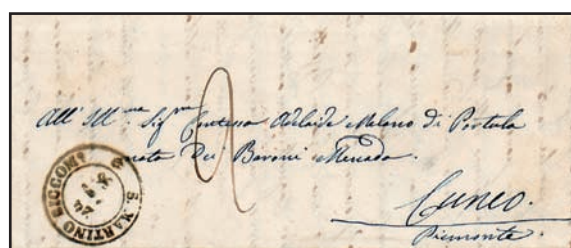 All' Ill.ma Sig.ra Contessa Adelaide Melano di Portula
nata Dei Baroni
Cuneo.
Piemonte.
2
S. MARTINO RICCOMI.
24